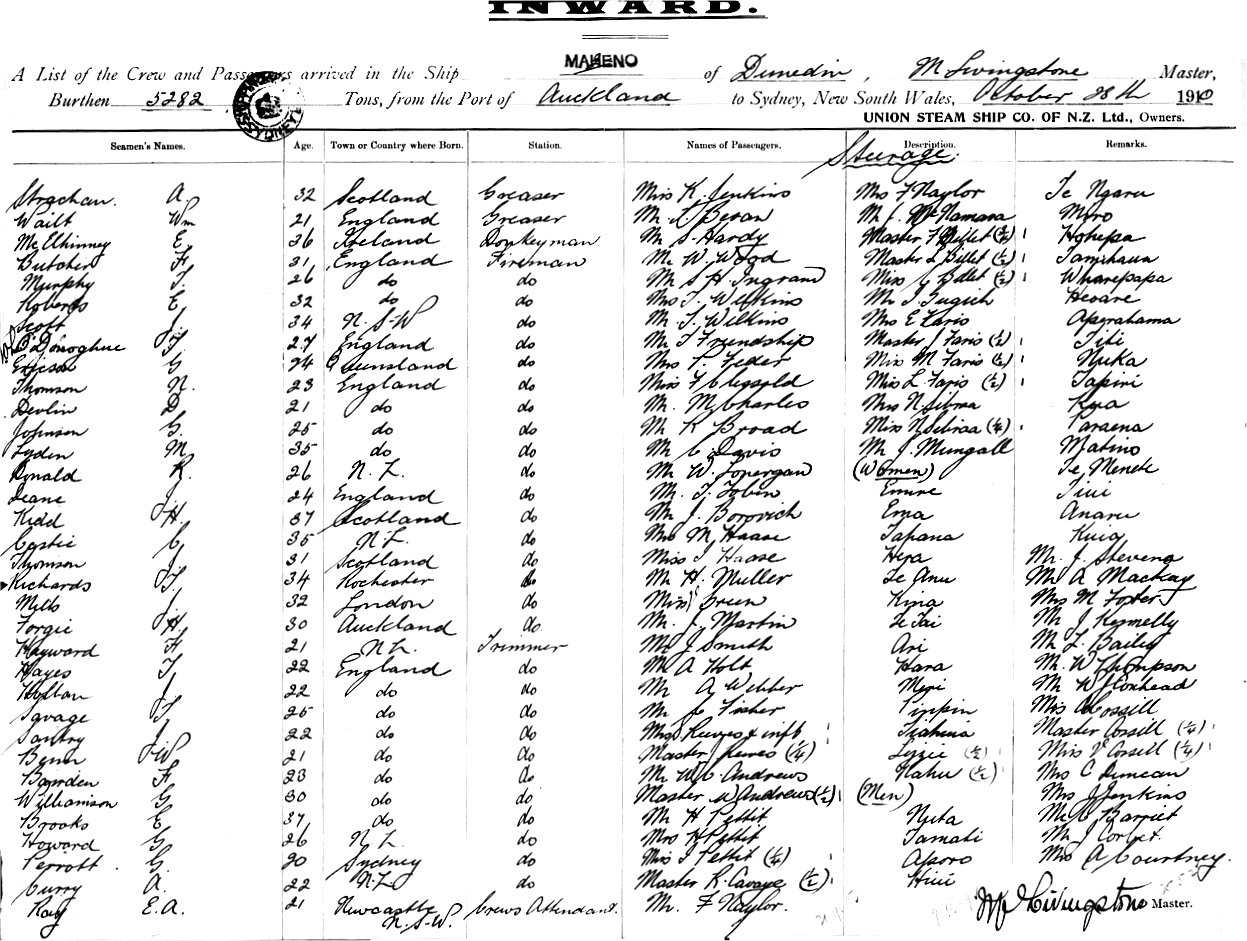 INWARD.
A List of the Crew and Passengers arrived in the Ship MAHENO of Dunedin, M Livingstone Master,
Burthen 5282 Tons, from the Port of Auckland to Sydney, New South Wales, October 28th 1910
UNION STEAM SHIP CO. OF N.Z. Ltd., Owners.
Seamen's Names. Age. Town or Country where Born. Station. Names of Passengers. Description. Remarks.
Steerage.
Strachan. A. 32 Scotland Greaser Miss K. Jenkins Mrs F Naylor Te Ngaru
Wailt Wm 21 England Greaser Mr L Bevan Mr J. McNamara Miro
McIlhinney E. 36 Ireland Donkeyman Mr S. Hardy Master F Billet Hohepa
Butcher F. 31 England Fireman Mr W. Wood Master L Billet (½) Tamihana
Murphy T. 26 do do Mr S H Ingram Miss Billet (½) Wharepapa
Roberts E. 32 do do Mrs T. Wilkins Mr J
Scott J. 34 N.S.W do Mr T. Wilkins Mrs E Faris Aperahama
O'Donoghue T. 27 England do Mr T Friendship Master J Faris (½) Titi
G 24 Queensland do Mrs Feder Miss M Faris (½) Nuka
Thomson N. 23 England do Miss F Clegsold Miss L. Faris (½)
Devlin D. 21 do do Mr. M Charles Mrs N
Johnson G. 25 do do Mr K Broad Miss N (¼) Paraena
Lyden M. 35 do do Mr C. Davis Mr J. Mungall Matino
Donald K. 26 N.Z. do Mr W. Lonergan (Women) Te
Deane J. 24 England do Mr. T. Tobin
Kidd H. 37 Scotland do Mr J. Borovich Ema Anaru
Castie C. 35 N.Z. do Mrs M Haase Tapana
Thomson J. 31 Scotland do Miss J Haase Hera Mr. J. Stevens
Richards T. 34 Rochester do Mr H. Muller Te Anu Mr A Mackay
Mills J. 32 London do Miss Green Kina Mrs M Foster
Forgie H. 30 Auckland do Mr. J. Martin Te Tai Mr J Kennelly
Hayward F. 21 N.Z. Trimmer Mr J. Smith Ari Mr L. Bailey
Hayes T. 22 England do Mr A Holt Hara Mr. W Thompson
J. 22 do do Mr A Webber Meri Mr W Cloxhead
Savage T. 25 do do Mr C Fisher Pipkin Mrs A Cossill
Santry J. 22 do do Mrs Reeves & inft Master Corsill (¼)
W 21 do do Master Reeves (¼) Lizzie (½) Miss V Corsill (¼)
Bawden F. 23 do do Mr W C Andrews Nahu (½) Mrs C Duncan
Williamson G. 30 do do Master W Andrews (½) (Men) Mrs J Jenkins
Brooks E. 37 do do Mr H Pettit Nuta Mr C Barrett
Howard G. 26 N.Z. do Mrs H Pettit Tamati Mr J Corbet.
Perrott. G. 20 Sydney do Miss I Pettit (¼) Aporo Mrs A Courtney.
Curry A. 22 N.Z. do Master K. Cavaye (½) Hiui
Roy E.A. 21 Newcastle N.S.W. Crews Attendant. Mr. F Naylor. M Livingstone Master.